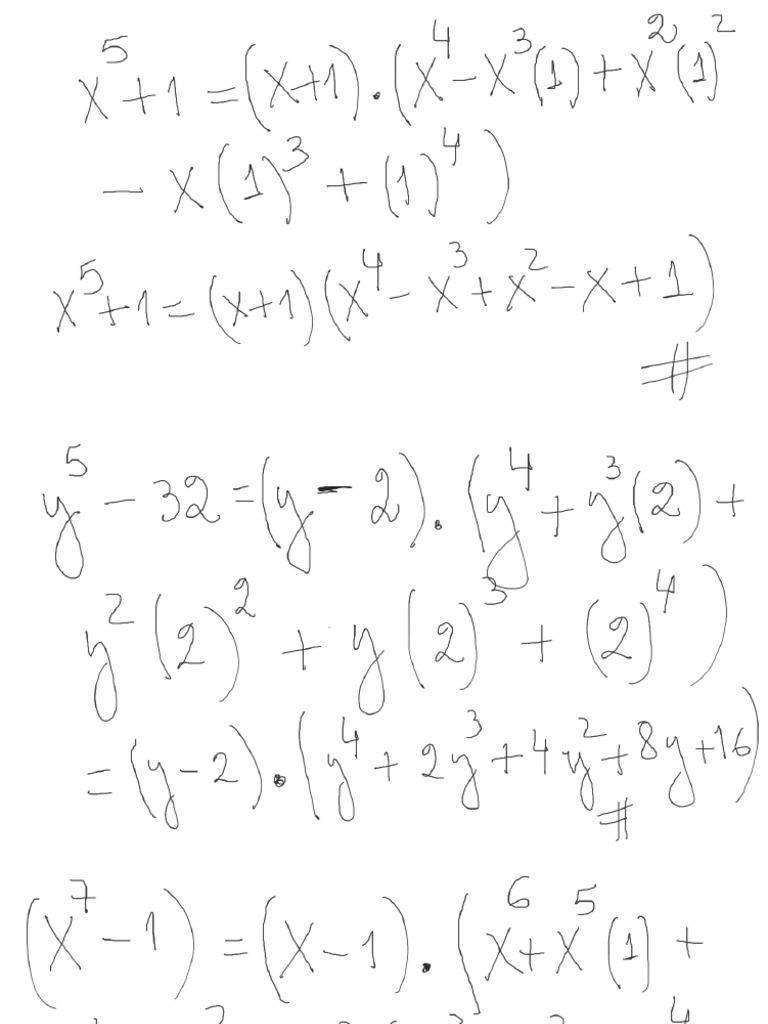 x⁵+1=(x+1).(x⁴-x³(1)+x²(1)²
-x(1)³+(1)⁴)
x⁵+1=(x+1)(x⁴-x³+x²-x+1)
#
y⁵-32=(y-2).(y⁴+y³(2)+
y²(2)²+y(2)³+(2)⁴)
=(y-2).(y⁴+2y³+4y²+8y+16)
#
(x⁷-1)=(x-1).(x⁶+x⁵(1)+